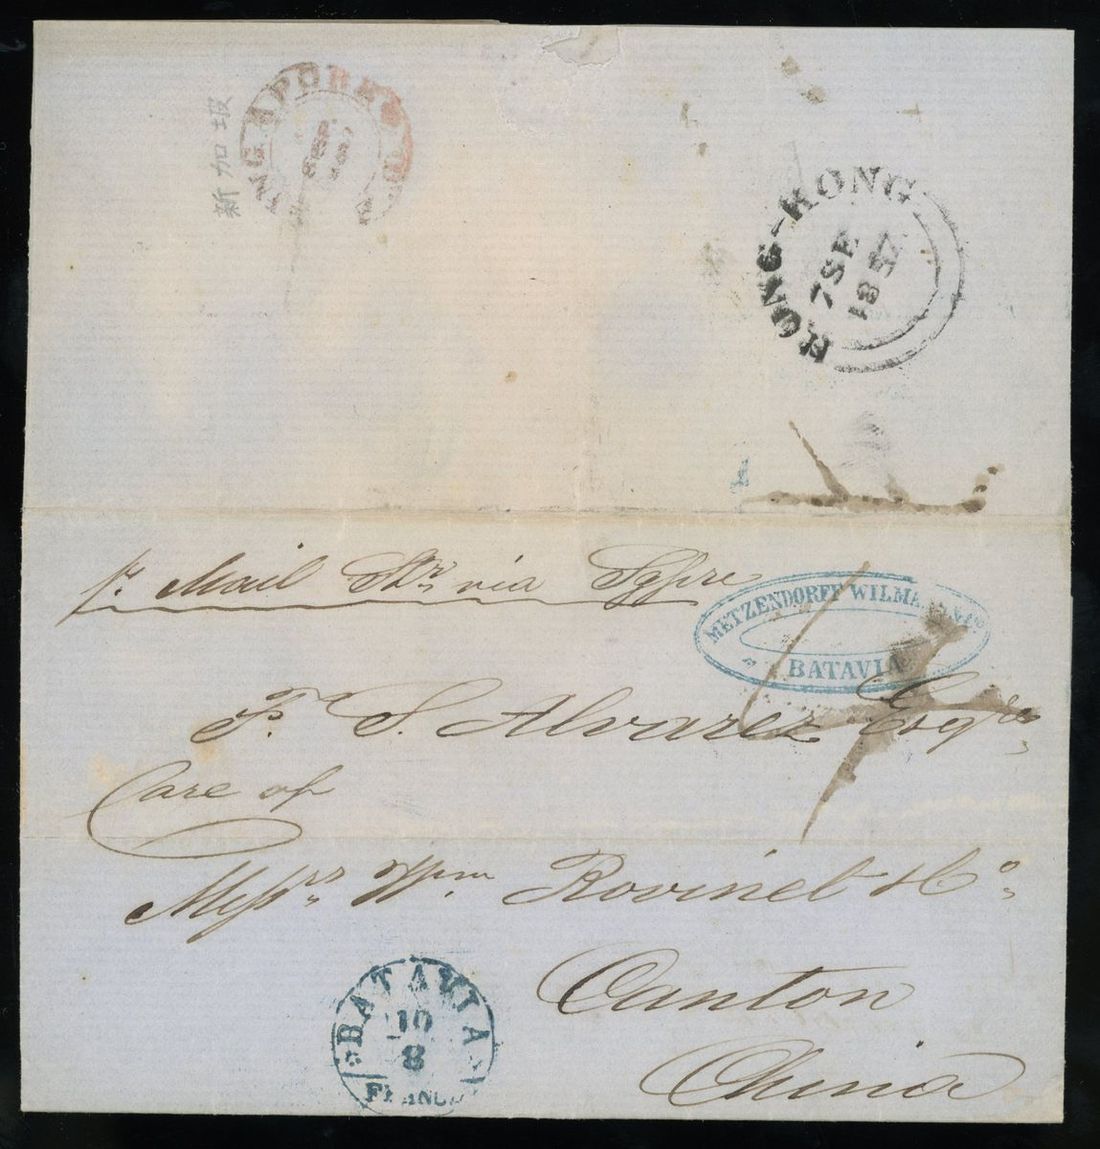 新加坡
HONG-KONG
7 SE
1857
pr Mail Str via Sgpre
METZENDORFF
BATAVIA
F. S. Alvarez Esqre,
Care of
Messrs Wm Rovinet & Co,
Canton
China
BATAVIA
10
8
FRANCO